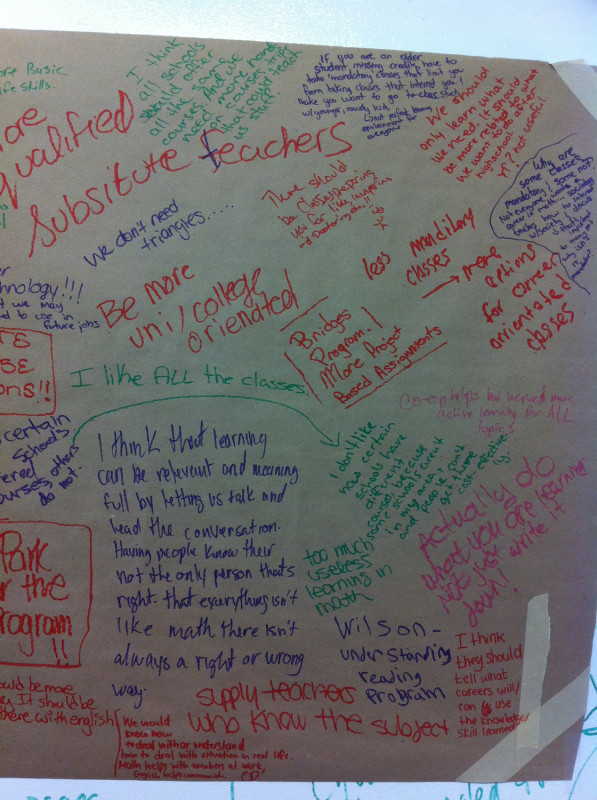 ore Basic
ife skills.
I think
all schools
should offer
all the same
courses. And use
need more hands
on courses. try
what ought teach
us stuff
IF you are an older
student, missing credits, have to
take 'mandatory' classes that limit you
from taking classes that interest you!
make you want go to class stuck
w/ younger, rowdy kids.
not perfect learning
environment for
everyone
We should
only learn what
we need, it should
be more related to what
we want to do after
highschool or after
not useful
Why are
some classes
mandatory & some not?
Not everyone wants a
career in math... sociology
teaches how to
ore
qualified
substitute teachers
we don't need
triangles.....
There should
be
less manditory
classes
→ more
options
for career
orrientated
classes
hnology!!!
t we may
ed to use in
future jobs
Be more
uni/college
orienated
Bridges
Program!
!!More Project
Based Assignments
RE
SE
ons!!
I like ALL the classes.
Co-op helps but we need more
active learning for ALL
topics
certain
schools
ferred
ourses, others
do not.
I think that learning
can be relevant and meaning
full by letting us talk and
lead the conversation.
Having people know their
not the only person thats
right. that everything isn't
like math there isn't
always a right or wrong
way.
I don't like
how certain
schools have
different
courses, because
some schools aren't
in my area,
and people can't
get there
cost effective
ly.
too much
useless
learning in
math
Actually do
what you are learning
NOT just write it
down!
Park
r the
rogram
!!
Wilson-
understanding
reading
program
I think
they should
tell what
careers will/
can use
the knowledge/
skill learned
ould be more
It should be
there with english
supply teachers
who know the subject
We would
know how
to deal with or understand
how to deal with situation in real life.
Math helps with numbers at work,
English helps communicate